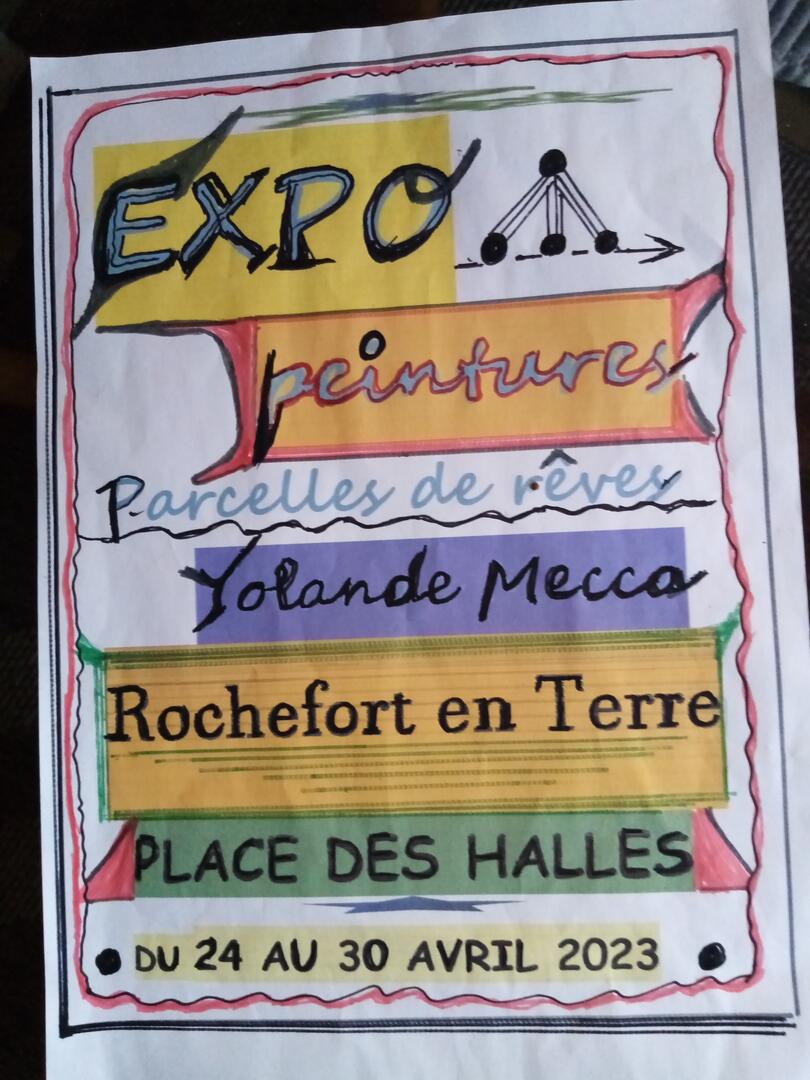 EXPO
peintures
Parcelles de rêves
Yolande Mecca
Rochefort en Terre
PLACE DES HALLES
DU 24 AU 30 AVRIL 2023